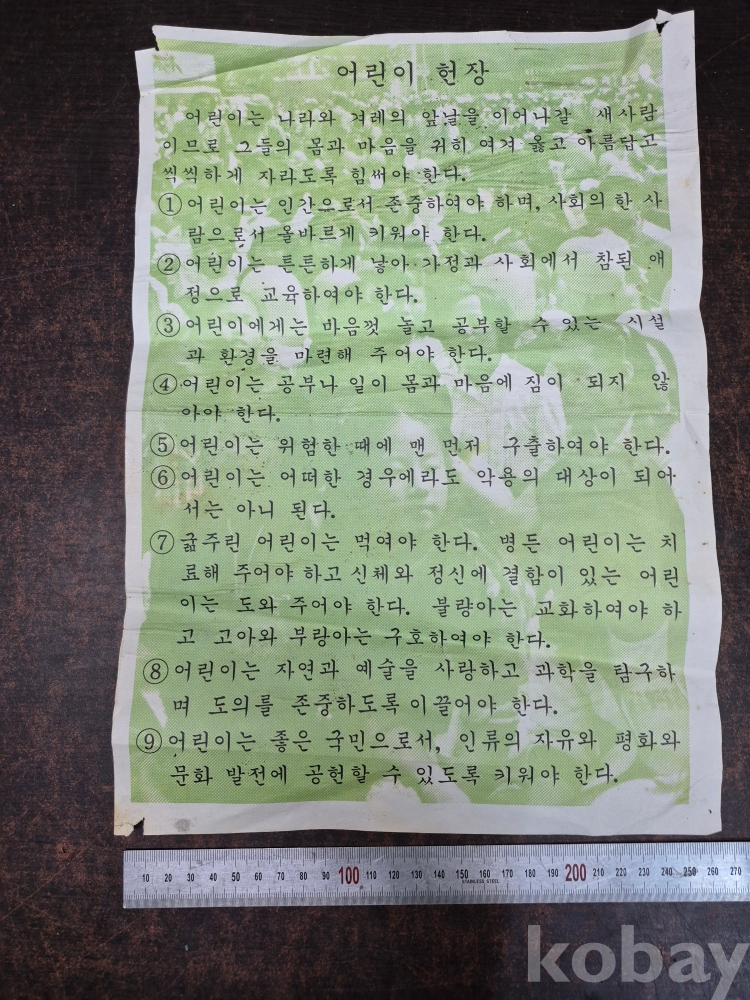 어린이 헌장
어린이는 나라와 겨레의 앞날을 이어나갈 새사람
이므로 그들의 몸과 마음을 귀히 여겨 옳고 아름답고
씩씩하게 자라도록 힘써야 한다.
① 어린이는 인간으로서 존중하여야 하며, 사회의 한 사
람으로서 올바르게 키워야 한다.
② 어린이는 튼튼하게 낳아 가정과 사회에서 참된 애
정으로 교육하여야 한다.
③ 어린이에게는 마음껏 놀고 공부할 수 있는 시설
과 환경을 마련해 주어야 한다.
④ 어린이는 공부나 일이 몸과 마음에 짐이 되지 않
아야 한다.
⑤ 어린이는 위험한 때에 맨 먼저 구출하여야 한다.
⑥ 어린이는 어떠한 경우에라도 악용의 대상이 되어
서는 아니 된다.
⑦ 굶주린 어린이는 먹여야 한다. 병든 어린이는 치
료해 주어야 하고 신체와 정신에 결함이 있는 어린
이는 도와 주어야 한다. 불량아는 교화하여야 하
고 고아와 부랑아는 구호하여야 한다.
⑧ 어린이는 자연과 예술을 사랑하고 과학을 탐구하
며 도의를 존중하도록 이끌어야 한다.
⑨ 어린이는 좋은 국민으로서, 인류의 자유와 평화와
문화 발전에 공헌할 수 있도록 키워야 한다.
10 20 30 40 50 60 70 80 90 100 110 120 130 140 150 160 170 180 190 200 210 220 230 240 250 260 270
STAINLESS STEEL
kobay